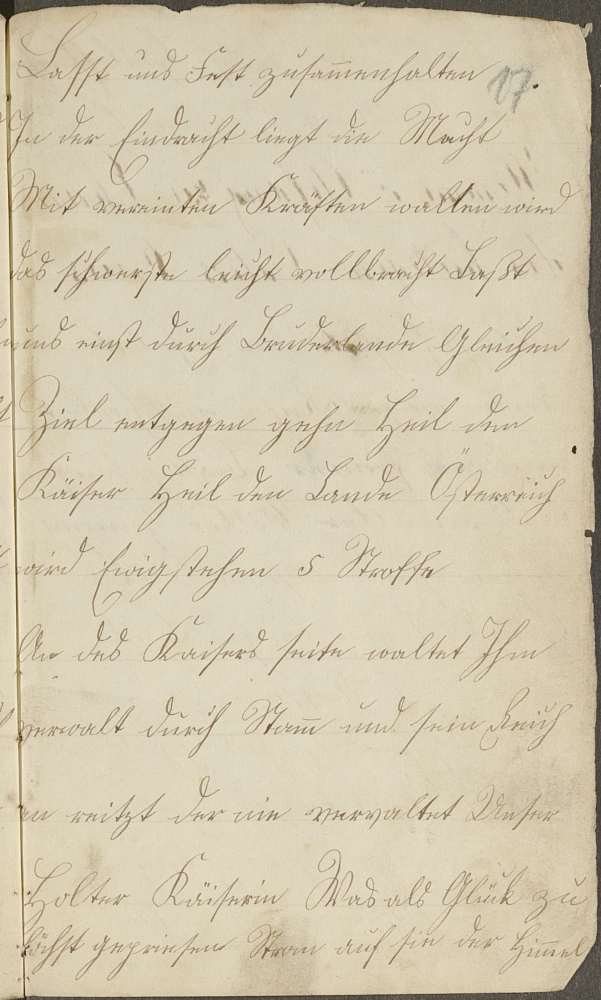 17.
Lasst uns Fest zusam̄enhalten
In der Eindracht liegt die Macht
Mit vereinten Kräften walten wird
das schwerste leicht vollbracht Laßt
uns einst durch Bruderbande Gleichen
Ziel entgegen gehn Heil den
Käiser Heil den Lande Österreich
wird Ewigstehen 5 Stroffe
An des Kaisers seite waltet Ihm
verwalt durch Stam̄ und sein Reich
an reitzt der nie vervaltet Unser
Holter Käiserin Was als Glück zu
höchst gepriesen Stran auf sie der Him̄el